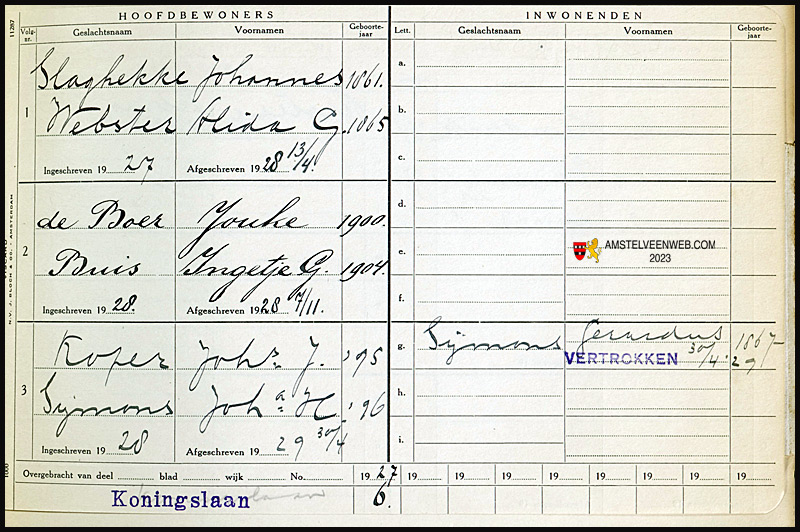 HOOFDBEWONERS INWONENDEN
Volg-nr. Geslachtsnaam Voornamen Geboorte-jaar Lett. Geslachtsnaam Voornamen Geboorte-jaar
11287
1 Slaghekke Johannes 1861. a.
Webster Alida G. 1865 b.
Ingeschreven 19 27 Afgeschreven 19 28 13/4. c.
2 de Boer Jouke 1900. d.
Buis Ingetje G. 1904. e.
AMSTELVEENWEB.COM
2023
Ingeschreven 19 28. Afgeschreven 19 28 7/11. f.
3 Koper Joh.s J. '95 g. Sijmons Gerardus 1867
VERTROKKEN 30/4 '29
Sijmons Joh.a H. '96 h.
Ingeschreven 19 28 Afgeschreven 19 29 30/4 i.
Overgebracht van deel blad wijk No. 19 27 19 19 19 19 19 19 19 19
Koningslaan laan 6.
N.V. J. BLOCH & CO. - AMSTERDAM